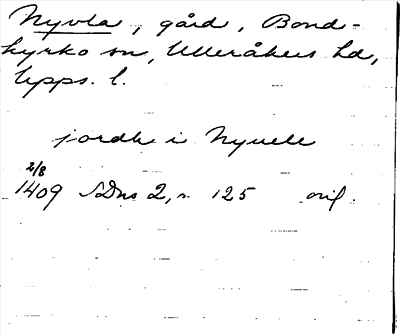 Nyvla, gård, Bond-
kyrko sn, Ulleråkers hd,
Upps. l.
jordh i Nyuele
2/8
1409 SDns 2, s. 125 orig.